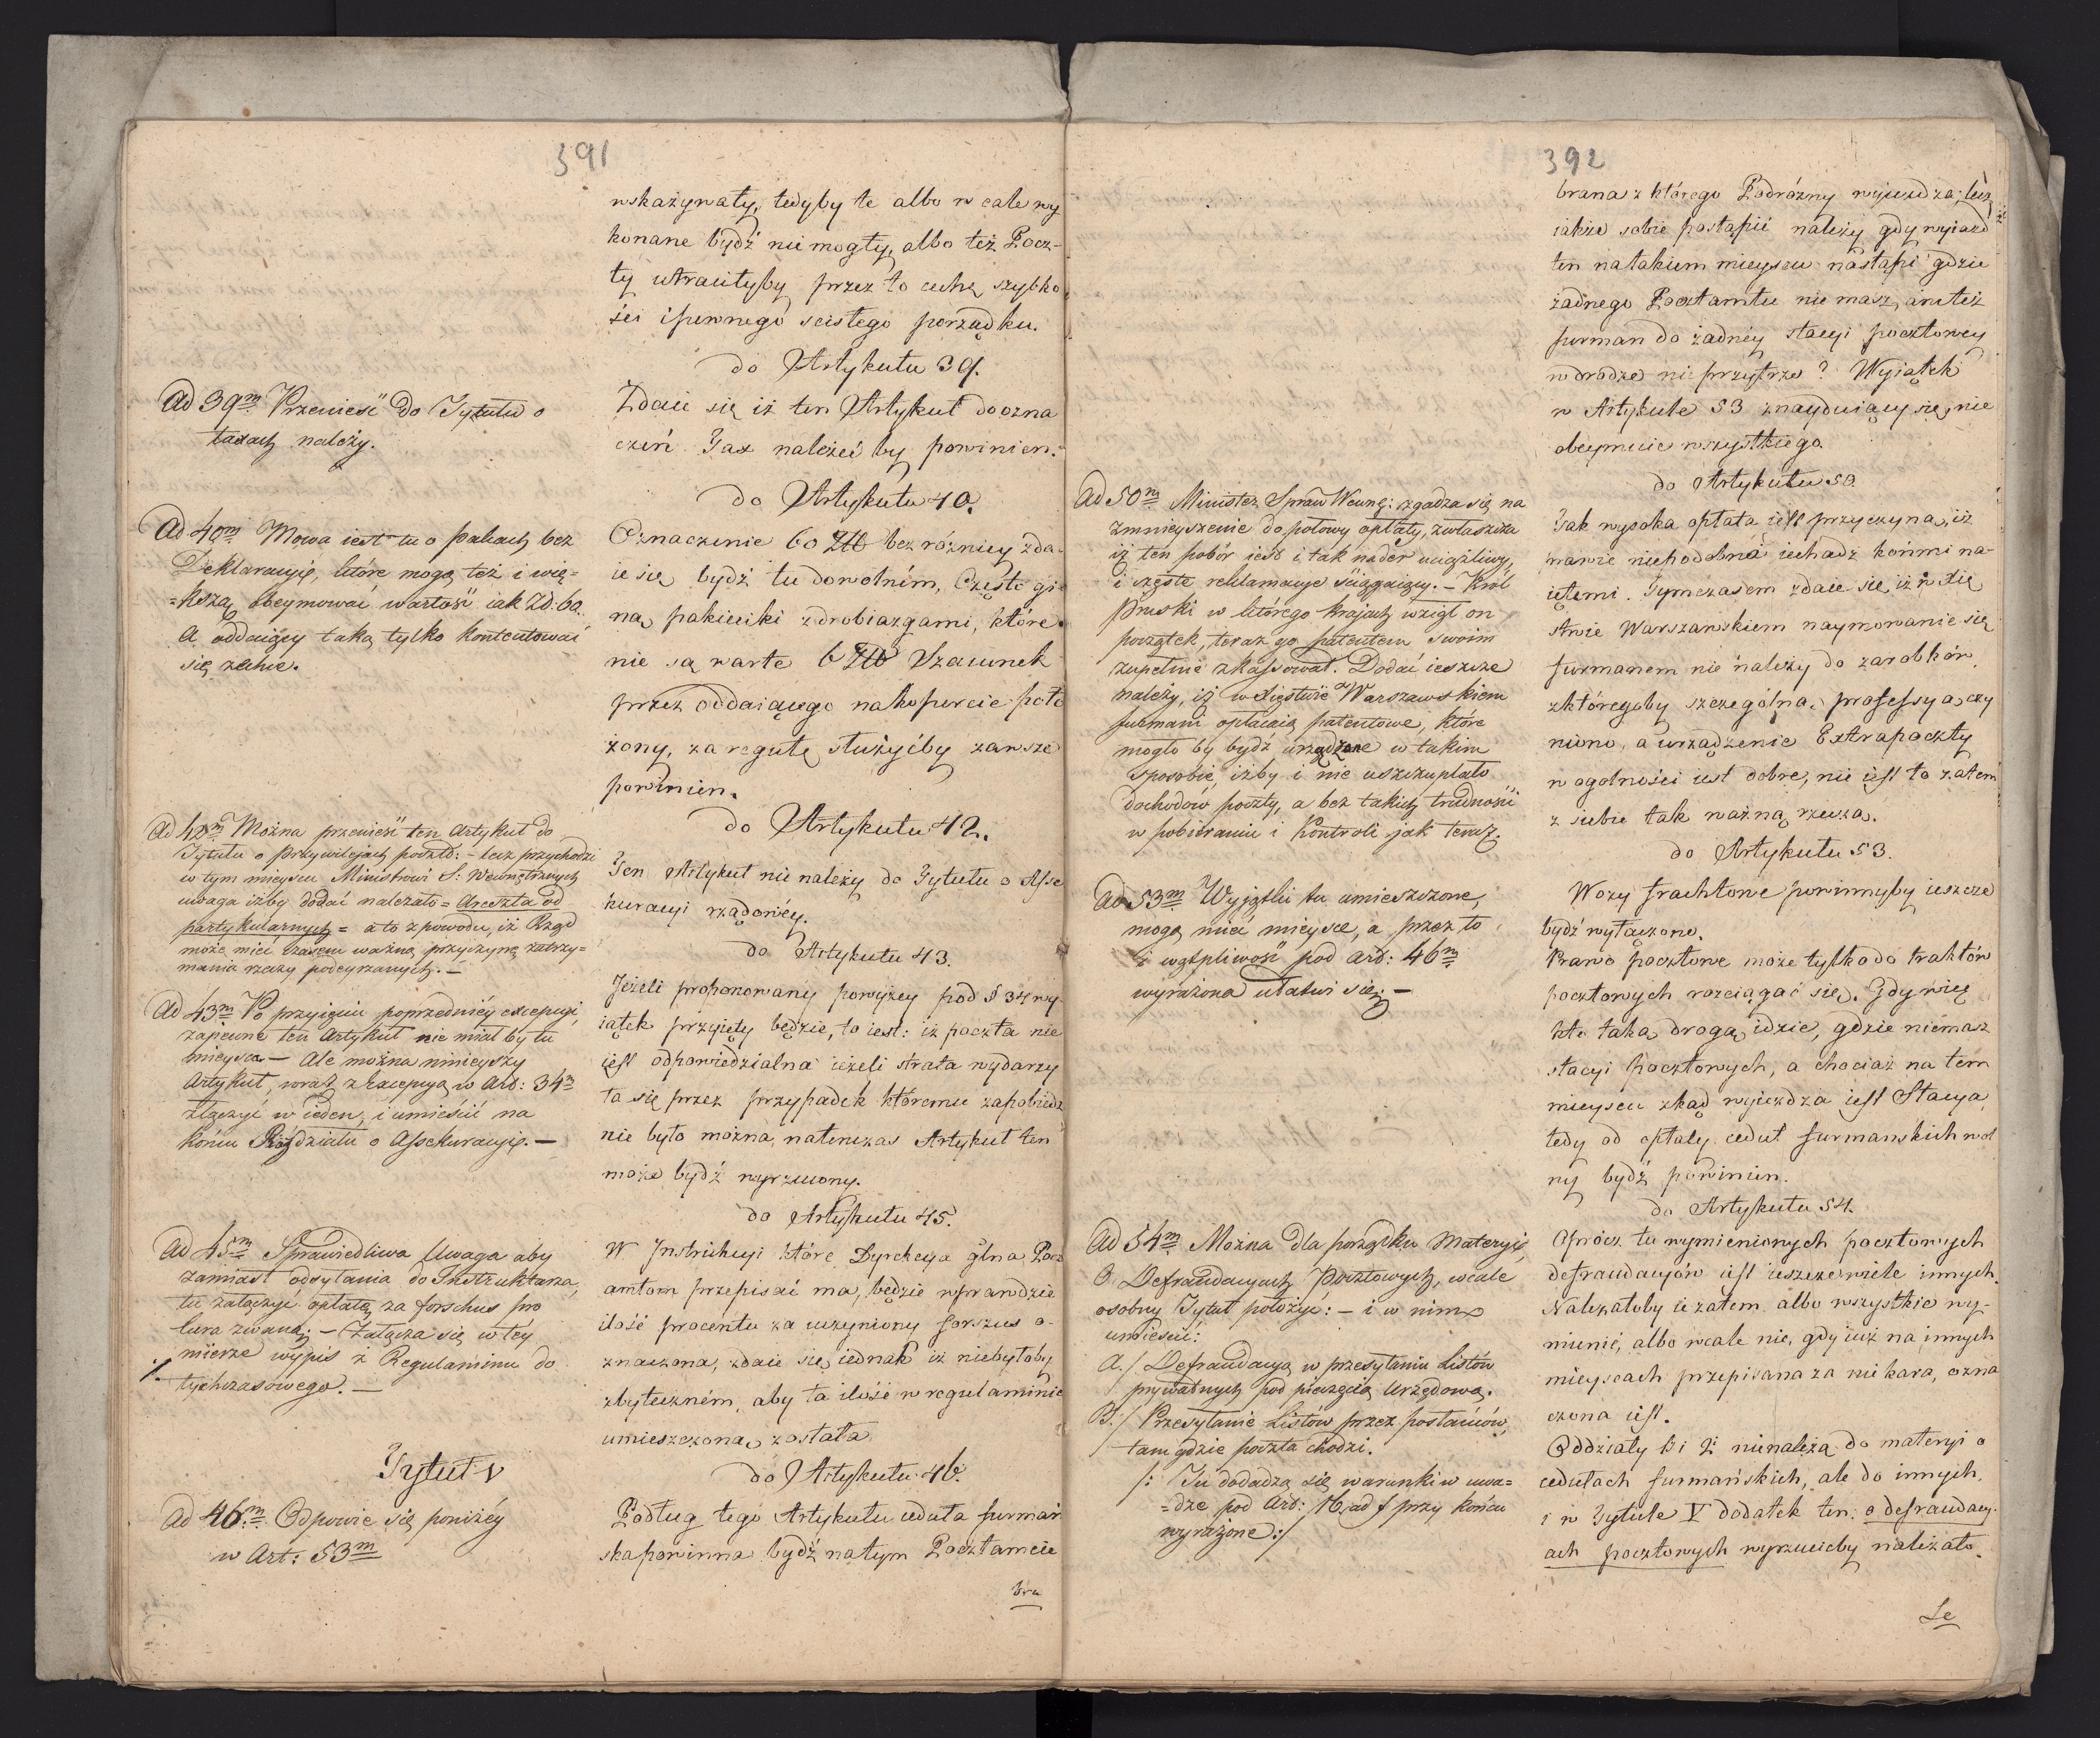 391
wskazywały, tedyby te albo w cale wy
konane bydź nie mogły, albo też Pocz-
ty utraciłyby przez to cechę szybko
ści i pewnego scisłego porządku.
do Artykułu 39.
Ad 39m Przenieść do Tytułu o
taxach należy.
Zdaie się iż ten Artykuł do ozna
czeń Tax należeć by powinien.
do Artykułu 40.
Ad 40m Mowa iest tu o pakach bez
Deklaracyię, które mogą też i wię=
=kszą obeymować wartość iak Zł: 60.
A oddaiący taką tylko kontentować
się zechce.
Oznaczenie 60 Złł bez różnicy zda-
ie się bydź tu dowolném, Częste gi
ną pakieciki z drobiazgami, które
nie są warte 6 Złł Szacunek
przez oddaiącego na kopercie poło
żony, za regułę służyćby zawsze
powinien.
do Artykułu 42.
Ad 42m Można przenieść ten Artykuł do
Tytułu o przywilejach poczto: - lecz przychodzi
w tym mieyscu Ministrowi S: Wewnętrznych
uwaga iżby dodać należało = Areszta od
partykularnych = a to z powodu, iż Rząd
może mieć czasem ważną przyczynę zatrzy=
mania rzeczy podeyrzanych. -
Ten Artykuł nie należy do Tytułu o Asse
kuracyi rządowéy.
do Artykułu 43.
Ad 43m Po przyięciu poprzedniéy excepcyi,
zapewne ten Artykuł nie miał by tu
mieysca - Ale można ninieyszy
Artykuł, wraz z Excepcyą w Art: 34m
złączyć w ieden, i umieścić na
końcu Rozdziału o Assekuracyię. -
Jeżeli proponowany powyżey pod § 34 wy
iątek przyięty będzie, to iest: iż poczta nie
iest odpowiedzialna ieżeli strata wydarzy
ła się przez przypadek któremu zapobiedz
nie było można, natenczas Artykuł ten
może bydź wyrzucony.
do Artykułu 45.
Ad 45m Sprawiedliwa Uwaga aby
zamiast odsyłania do Instruktarza,
tu załączyć opłatę za forschus pro
cura zwaną. - Załącza się w tey
mierze wypis z Regulaminu do
tychczasowego. -
W Instrukcyi które Dyrekcya Głna Pocz
amtom przepisać ma, będzie wprawdzie
ilość procentu za uczyniony forszus o-
znaczona, zdaie się iednak iż niebyłoby
zbyteczném, aby ta ilość w regulaminie
umieszczoną została
Tytuł V
do Artykułu 46.
Ad 46m Odpowie się poniżéy
w Art: 53m
Podług tego Artykułu ceduła furmań
ska powinna bydź na tym Poczt amcie
bra
392
brana z którego Podróżny wyjeżdza; lecz
iakże sobie postąpić należy gdy wyiazd
ten na takiem mieyscu nastąpi gdzie
żadnego Pocztamtu nie masz, ani też
furman do żadnéy stacyi pocztowey
w drodze nie przytrze? Wyiątek
w Artykule 53 znayduiący się, nie
obeymuie wszystkiego.
do Artykułu 50.
Ad 50m Minister Spraw Wewnę: zgadza się na
zmnieyszenie do połowy opłaty, zwłaszcza
iż ten pobór iest i tak nader uciążliwy,
i częste reklamacye ściągaiący. - Król
Pruski w którego krajach wziął on
początek, teraz go patentem swoim
zupełnie zkassował. Dodać ieszcze
należy, iż w Xięstwie Warszawskiem
furmani opłacaią patentowe, które
mogło by bydź urządzone w takim
sposobie, iżby i nie uszczuplało
dochodów poczty, a bez takich trudności
w pobieraniu i Kontroli jak teraz.
Tak wysoka opłata iest przyczyną, iż
prawie niepodobna iechać końmi na-
iętemi. Tymczasem zdaie się, iż w Xię
stwie Warszawskiem naymowanie się
furmanem nie należy do zarobków,
z któregoby szczególną professyą czy
niono, a urządzenie Extrapoczty
w ogolności iest dobre, nie iest to zatem
z siebie tak ważną rzeczą.
do Artykułu 53.
Ad 53m Wyjątki tu umieszczone,
mogą mieć mieysce, a przez to
i wątpliwość pod Art: 46m
wyrażona ułatwi się. -
Wozy frachtowe powinnyby ieszcze
bydź wyłączone.
Prawo pocztowe może tylko do traktów
pocztowych rozciągać się. Gdy więc
kto taką drogą idzie, gdzie niemasz
stacyi pocztowych, a chociaż na tem
mieyscu zkąd wyjeżdza iest Stacya,
tedy od opłaty ceduł furmanskich wol
ny bydź powinien.
do Artykułu 54.
Ad 54m Można dla porządku Materyię,
O Defraudacyach Pocztowych, wcale
osobny Tytuł położyć: - i w nim
umieścić:
A./ Defraudacyą w przesyłaniu Listów
prywatnych pod pieczęcią Urzędową.
B./ Przesyłanie Listów przez posłańców,
tam gdzie poczta chodzi.
/: Tu dodadzą się warunki w uwa=
=dze pod Art: 16. ad f przy końcu
wyrażone:/
Oprócz tu wymienionych pocztowych
defraudacyów iest ieszcze wiele innych.
Należałoby ie zatem albo wszystkie wy-
mienić, albo wcale nie, gdy iuż na innych
mieyscach przepisana za nie kara, ozna
czona iest.
Oddziały 1: i 2: nienależą do materyi o
cedułach furmańskich, ale do innych,
i w Tytule V dodatek ten: o defraudacy-
ach pocztowych wyrzucićby należało.
Le